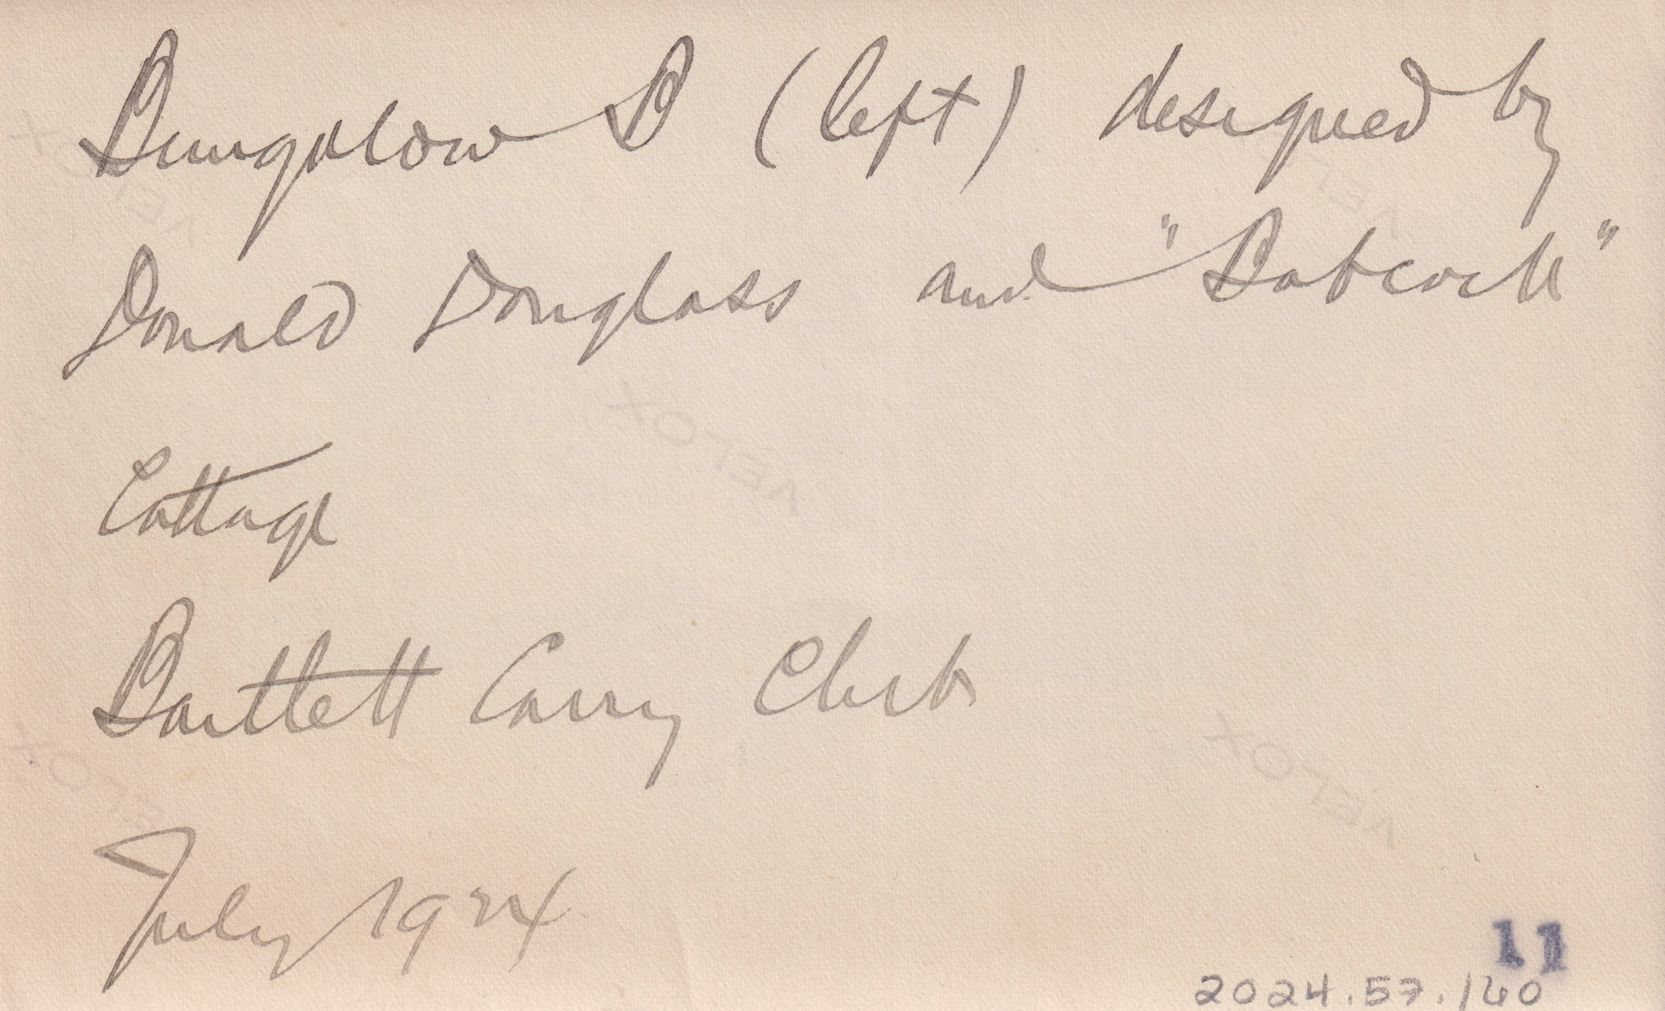 Bungalow B (left) designed by
Donald Douglass and "Babcock"
Cottage
Bartlett Carry Club
July 1924
11
2024.57.160
VELOX
VELOX
VELOX
VELOX
VELOX